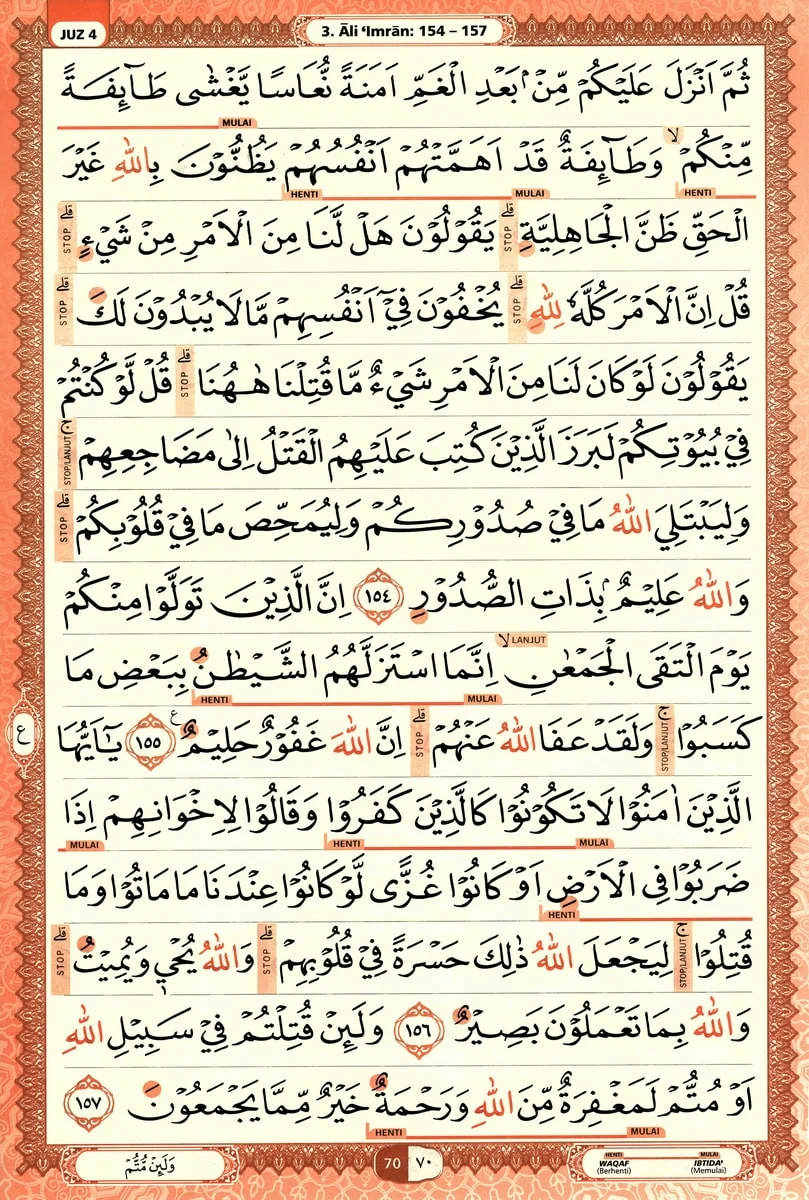 JUZ 4
3. Āli ‘Imrān: 154 – 157
ثُمَّ اَنْزَلَ عَلَيْكُمْ مِّنْۢ بَعْدِ الْغَمِّ اَمَنَةً نُّعَاسًا يَّغْشٰى طَاۤىِٕفَةً
MULAI
مِّنْكُمْ ۙ وَطَاۤىِٕفَةٌ قَدْ اَهَمَّتْهُمْ اَنْفُسُهُمْ يَظُنُّوْنَ بِاللّٰهِ غَيْرَ
HENTI MULAI HENTI
الْحَقِّ ظَنَّ الْجَاهِلِيَّةِ ۗ STOP يَقُوْلُوْنَ هَلْ لَّنَا مِنَ الْاَمْرِ مِنْ شَيْءٍ ۗ STOP
قُلْ اِنَّ الْاَمْرَ كُلَّهٗ لِلّٰهِ ۗ STOP يُخْفُوْنَ فِيْٓ اَنْفُسِهِمْ مَّا لَا يُبْدُوْنَ لَكَ ۗ STOP
يَقُوْلُوْنَ لَوْ كَانَ لَنَا مِنَ الْاَمْرِ شَيْءٌ مَّا قُتِلْنَا هٰهُنَا ۗ STOP قُلْ لَّوْ كُنْتُمْ
فِيْ بُيُوْتِكُمْ لَبَرَزَ الَّذِيْنَ كُتِبَ عَلَيْهِمُ الْقَتْلُ اِلٰى مَضَاجِعِهِمْ ۚ STOP/LANJUT
وَلِيَبْتَلِيَ اللّٰهُ مَا فِيْ صُدُوْرِكُمْ وَلِيُمَحِّصَ مَا فِيْ قُلُوْبِكُمْ ۗ STOP
وَاللّٰهُ عَلِيْمٌۢ بِذَاتِ الصُّدُوْرِ ١٥٤ اِنَّ الَّذِيْنَ تَوَلَّوْا مِنْكُمْ
يَوْمَ الْتَقَى الْجَمْعٰنِ ۙ LANJUT اِنَّمَا اسْتَزَلَّهُمُ الشَّيْطٰنُ بِبَعْضِ مَا
MULAI HENTI
كَسَبُوْا ۚ STOP/LANJUT وَلَقَدْ عَفَا اللّٰهُ عَنْهُمْ ۗ STOP اِنَّ اللّٰهَ غَفُوْرٌ حَلِيْمٌ ࣖ ١٥٥ يٰٓاَيُّهَا
ع
الَّذِيْنَ اٰمَنُوْا لَا تَكُوْنُوْا كَالَّذِيْنَ كَفَرُوْا وَقَالُوْا لِاِخْوَانِهِمْ اِذَا
MULAI HENTI MULAI
ضَرَبُوْا فِى الْاَرْضِ اَوْ كَانُوْا غُزًّى لَّوْ كَانُوْا عِنْدَنَا مَا مَاتُوْا وَمَا
HENTI
قُتِلُوْا ۚ STOP/LANJUT لِيَجْعَلَ اللّٰهُ ذٰلِكَ حَسْرَةً فِيْ قُلُوْبِهِمْ ۗ STOP وَاللّٰهُ يُحْيٖ وَيُمِيْتُ ۗ STOP
وَاللّٰهُ بِمَا تَعْمَلُوْنَ بَصِيْرٌ ١٥٦ وَلَىِٕنْ قُتِلْتُمْ فِيْ سَبِيْلِ اللّٰهِ
اَوْ مُتُّمْ لَمَغْفِرَةٌ مِّنَ اللّٰهِ وَرَحْمَةٌ خَيْرٌ مِّمَّا يَجْمَعُوْنَ ١٥٧
MULAI HENTI
وَلَىِٕنْ مُّتُّمْ
70 ٧٠
HENTI MULAI
WAQAF IBTIDA’
(Berhenti) (Memulai)